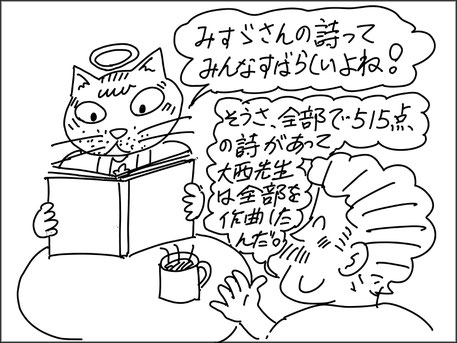 みすゞさんの詩って
みんなすばらしいよね！
そうさ、全部で515点
の詩があって
大西先生
は全部を
作曲した
んだ。